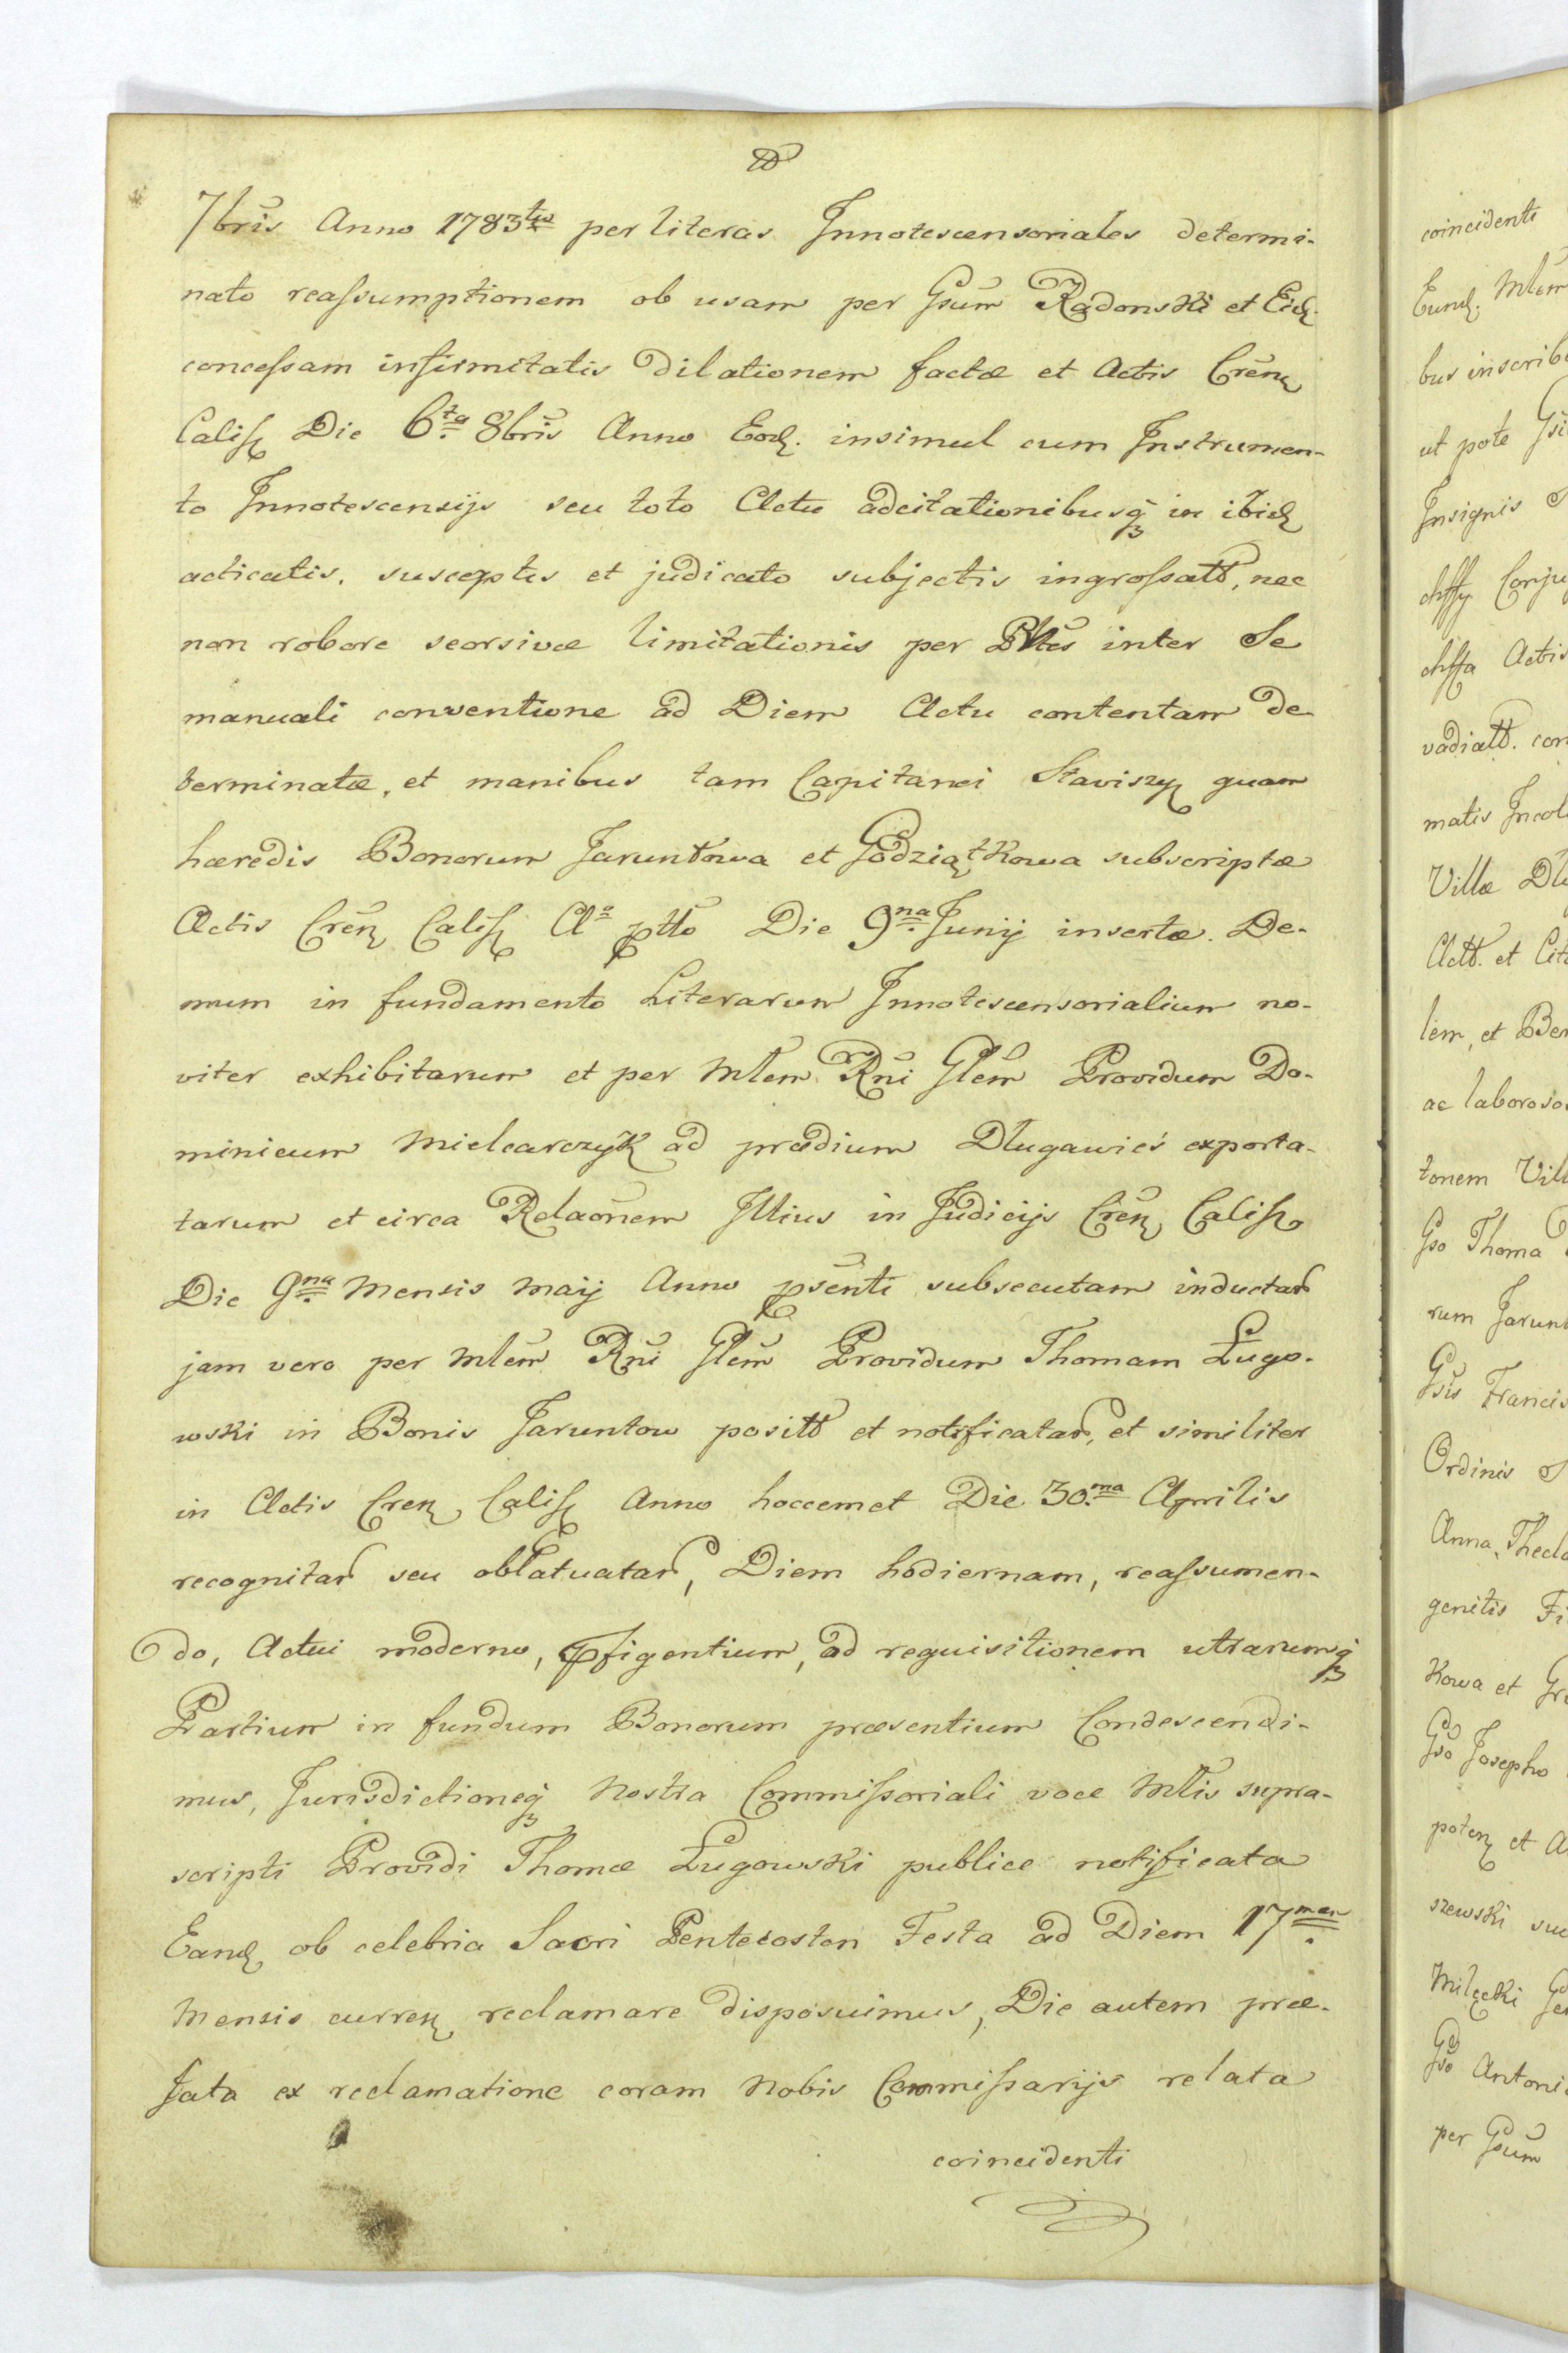 7bris Anno 1783tio per literas Innotescensoriales determi-
nato reassumptionem ob usam per Gsum Radonski et Eid.
concessam infirmitatis dilationem factæ et Actis Cren
Calis Die 6ta 8bris Anno Eod. insimul cum Instrumen-
to Innotescensijs seu toto Actu adcitationibusq in ibid
acticatis, susceptis et judicato subjectis ingrossatt, nec
non robore seorsivæ limitationis per Ptes inter Se
manuali conventione ad Diem Actu contentam de
terminatæ, et manibus tam Capitanei Staviszyn quam
hæredis Bonorum Jaruntowa et Godziątkowa subscriptæ
Actis Cren Calis Ao ptto Die 9na Junij insertæ. De-
mum in fundamento Literarum Innotescensorialium no-
viter exhibitarum et per Mtlem Rni Glem Providum Do-
minicum Mielcarczyk ad prædium Długawieś exporta-
tarum et circa Relaonem Illius in Judicijs Cren Calis
Die 9na Mensis Maij Anno psenti subsecutam inductar
jam vero per Mtlem Rni Glem Providum Thomam Ługo-
wski in Bonis Jaruntow positt et notificatar, et similiter
in Actis Cren Calis Anno hoccemet Die 30.ma Aprilis
recognitar seu oblatuatar, Diem hodiernam, reassumen-
do, Actui moderno, pfigentium, ad requisitionem utrarumq
Partium in fundum Bonorum præsentium Condescendi-
mus, Jurisdictioneq Nostra Commissoriali voce Mtlis supra-
scripti Providi Thomæ Ługowski publice notificata
Eand ob celebria Sacri Pentecosten Festa ad Diem 17mam
Mensis curren reclamare disposuimus, Die autem præ-
fata ex reclamatione coram Nobis Commissarijs relata
coincidenti
coincidenti
Eund. Mtlem
bus inscrib
ut pote
Insignis
Actis
vadiatt. con
matis Incol
Villæ
Actt. et Cit
lem, et Bo
ac laboroso
tonem Vil
Gso Thoma
rum Jarunt
Gsis Francis
Ordinis
Anna, Thecla
genitis Fi
kowa et
Gso Josepho
poten et
szewski
Milęcki
Gso Antoni
per Gsum